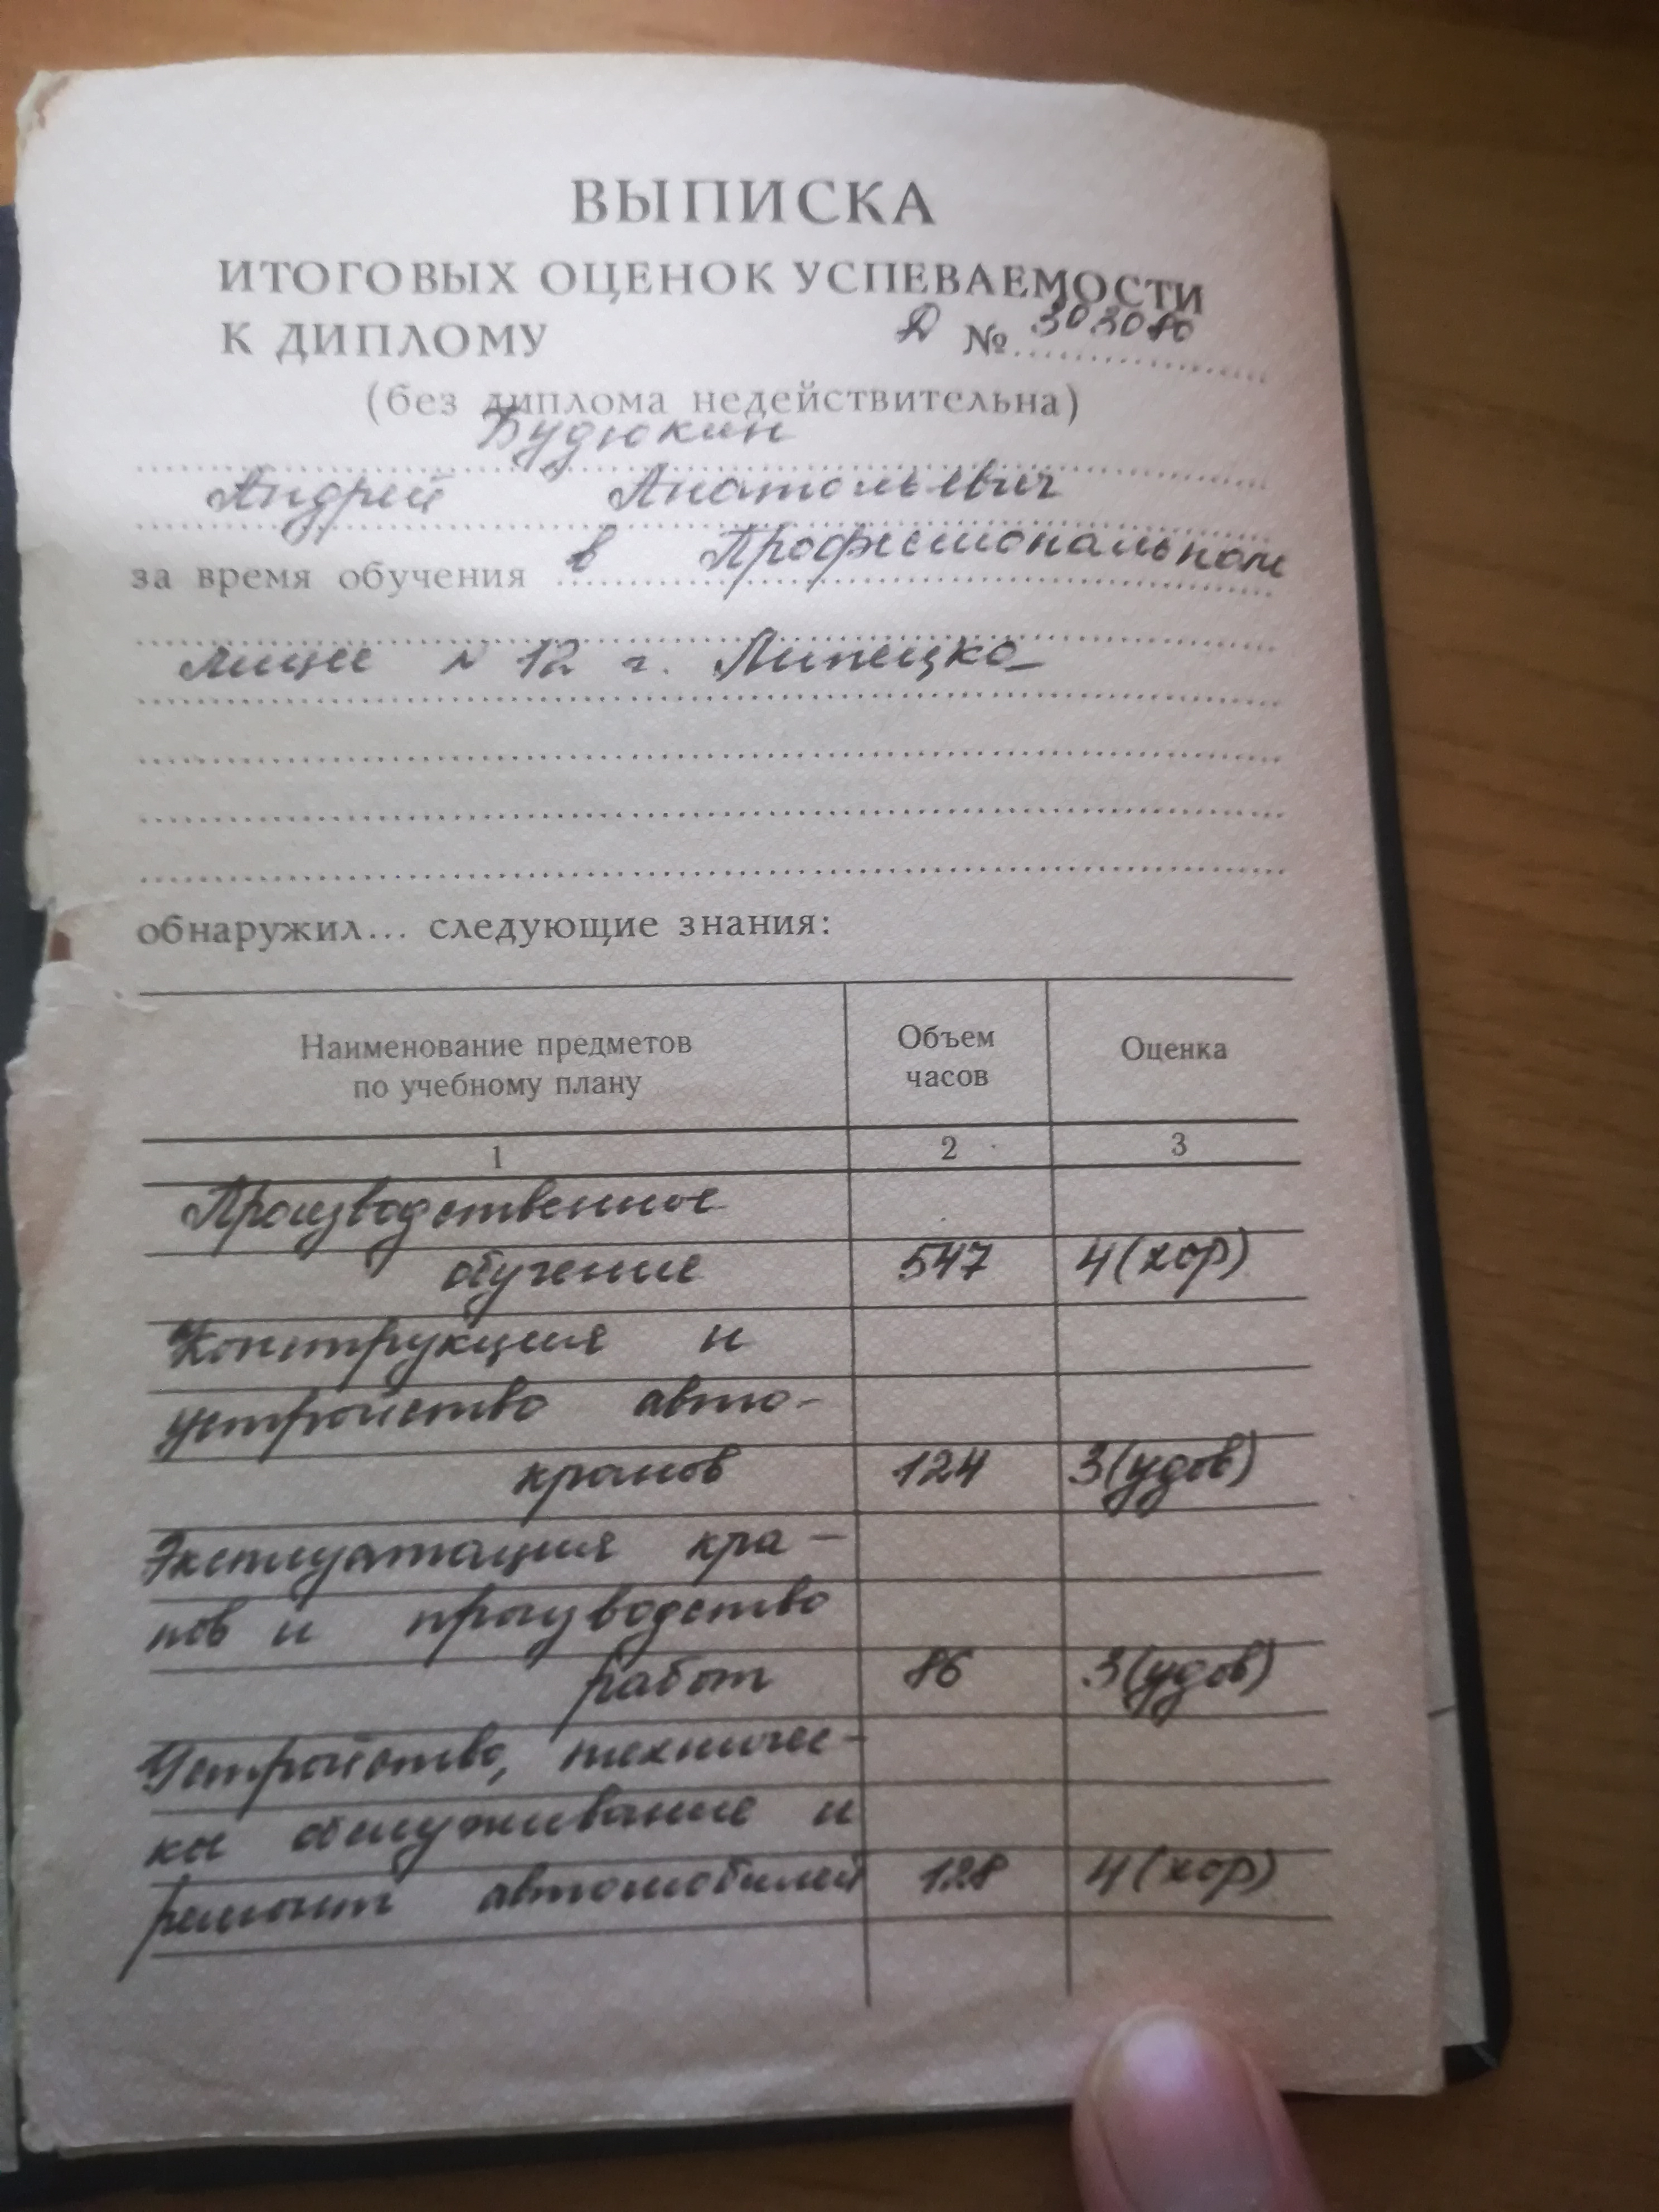 ВЫПИСКА
ИТОГОВЫХ ОЦЕНОК УСПЕВАЕМОСТИ
К ДИПЛОМУ Д №
(без диплома недействительна)
Будюкин
Андрей Анатольевич
за время обучения в Профессиональном
лицее N 12 г. Липецка
обнаружил... следующие знания:
Наименование предметов Объем Оценка
по учебному плану часов
1 2 3
Производственное
обучение 547 4(хор)
Конструкция и
устройство авто-
кранов 124 3(удов)
Эксплуатация кра-
нов и производство
работ 86 3(удов)
Устройство, техничес-
кое обслуживание и
ремонт автомобилей 128 4(хор)